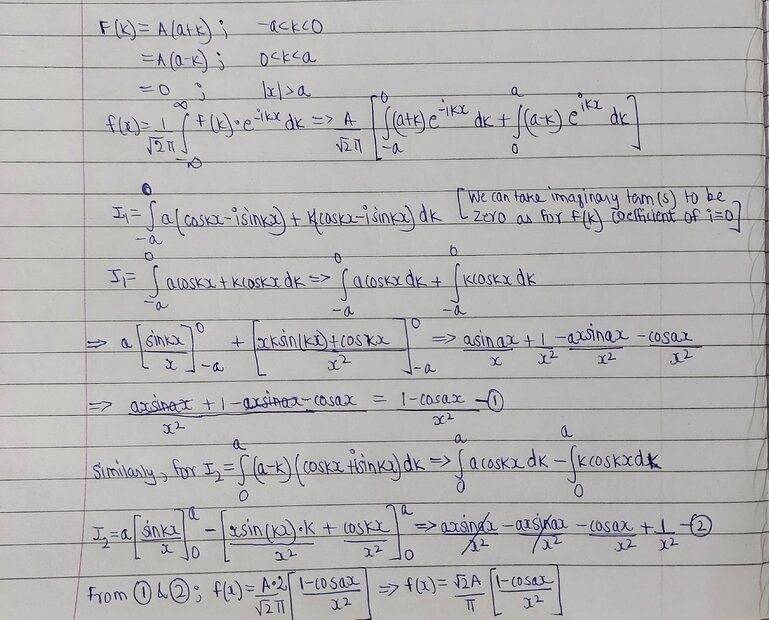 F(k) = A(a+k) ; -a<k<0
= A(a-k) ; 0<k<a
= 0 ; |x|>a
f(x) = 1/√2π ∫_{-∞}^{∞} f(k)·e^{-ikx} dk => A/√2π [∫_{-a}^{0} (a+k)e^{-ikx} dk + ∫_{0}^{a} (a-k) e^{ikx} dk]
I₁ = ∫_{-a}^{0} a(coskx-isinkx) + k(coskx-isinkx) dk [We can take imaginary term(s) to be
zero as for f(k) coefficient of i=0]
I₁ = ∫_{-a}^{0} acoskx + kcoskx dk => ∫_{-a}^{0} acoskx dk + ∫_{-a}^{0} kcoskx dk
=> a[sinkx/x]_{-a}^{0} + [xksin(kx)+coskx/x²]_{-a}^{0} => asinax/x + 1/x² - axsinax/x² - cosax/x²
=> axsinax + 1 - axsinax - cosax/x² = 1-cosax/x² - ①
Similarly, for I₂ = ∫_{0}^{a} (a-k)(coskx+isinkx) dk => ∫_{0}^{a} acoskx dk - ∫_{0}^{a} kcoskx dk
I₂ = a[sinkx/x]_{0}^{a} - [xsin(kx)·k/x² + coskx/x²]_{0}^{a} => axsinax/x² - axsinax/x² - cosax/x² + 1/x² - ②
From ① & ② ; f(x) = A·2/√2π [1-cosax/x²] => f(x) = √2A/π [1-cosax/x²]